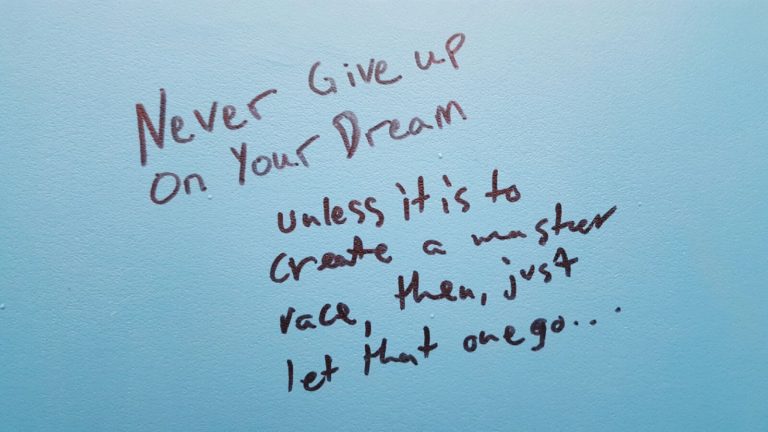 Never Give up
On Your Dream
unless it is to
create a master
race, then, just
let that one go...